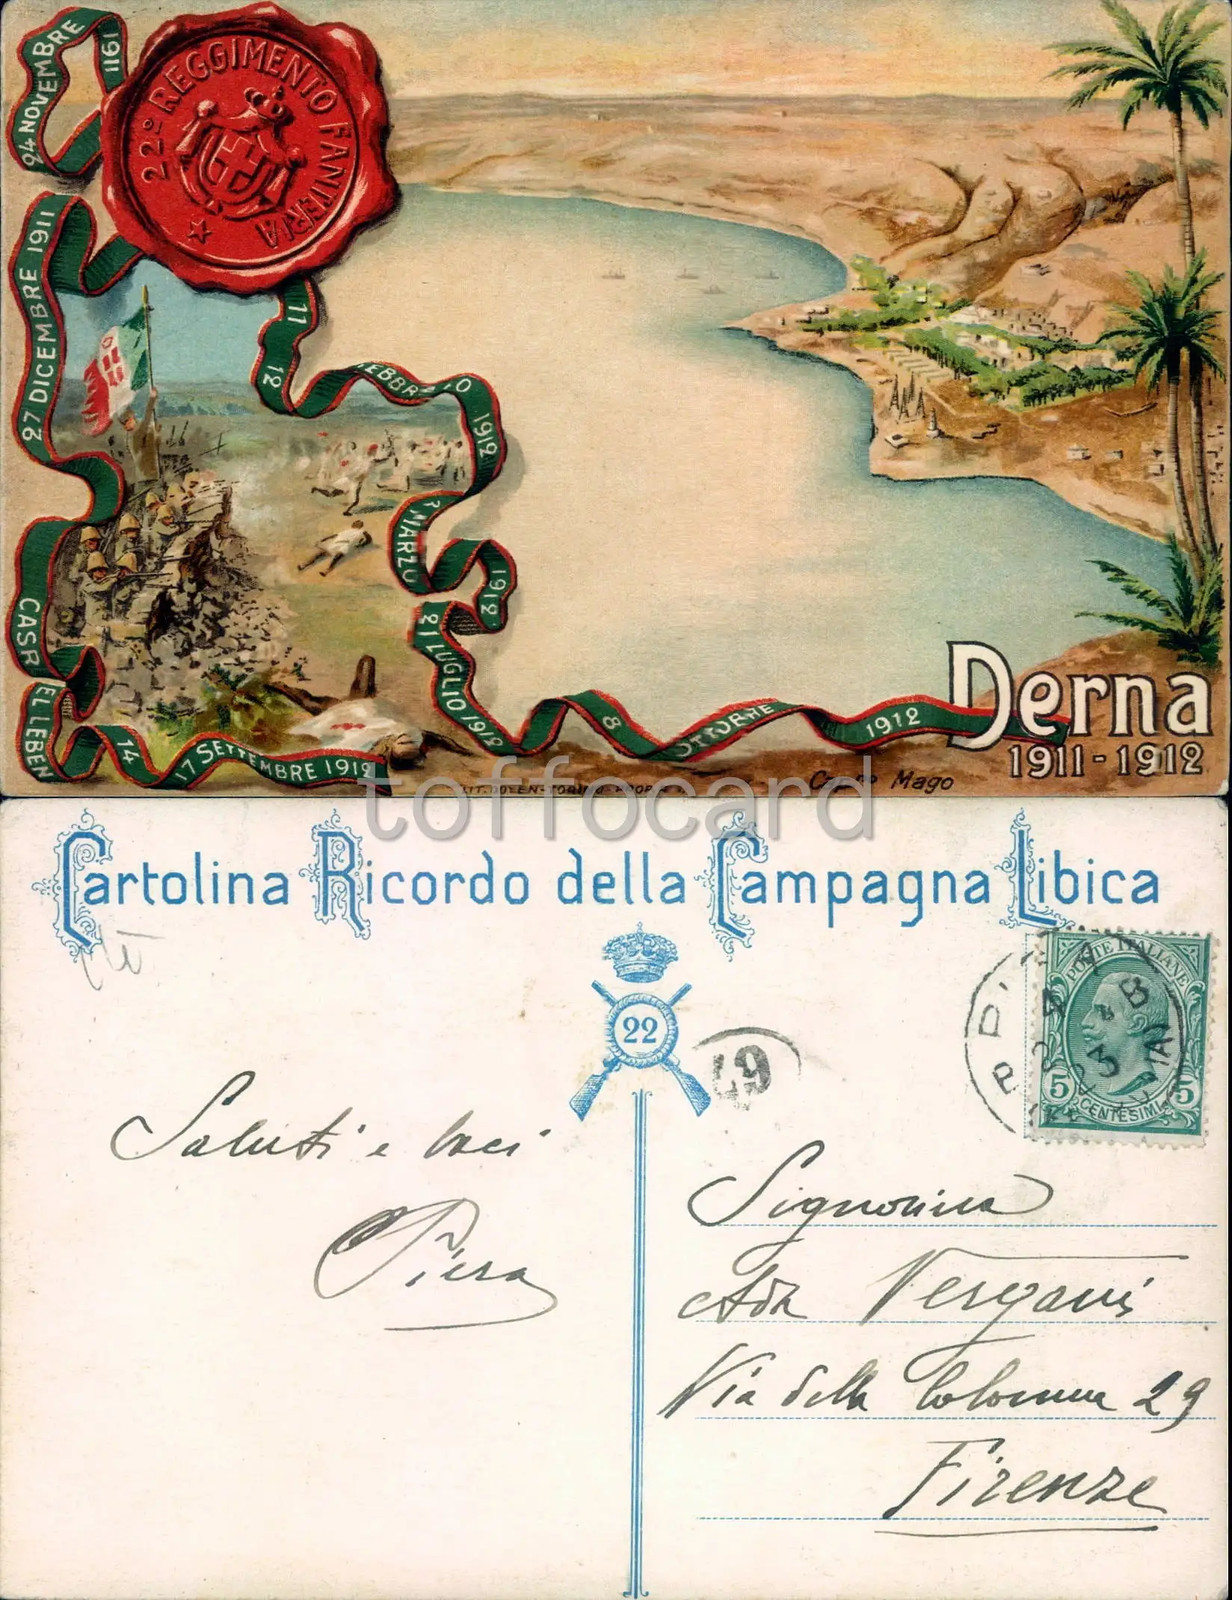 24 NOVEMBRE 1911
22º REGGIMENTO FANTERIA
27 DICEMBRE 1911
11
12
FEBBRAIO 1912
3 MARZO 1912
21 LUGLIO 1912
CASR EL LEBEN
14
17 SETTEMBRE 1912
8 OTTOBRE 1912
Derna
1911-1912
Mago
toffocard
Cartolina Ricordo della Campagna Libica
22
POSTE ITALIANE
5 CENTESIMI 5
Saluti e baci
Piera
Signorina
Ada Vergani
Via della Colonna 29
Firenze